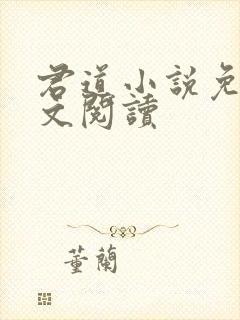 君道小說免
文閱讀
董蘭